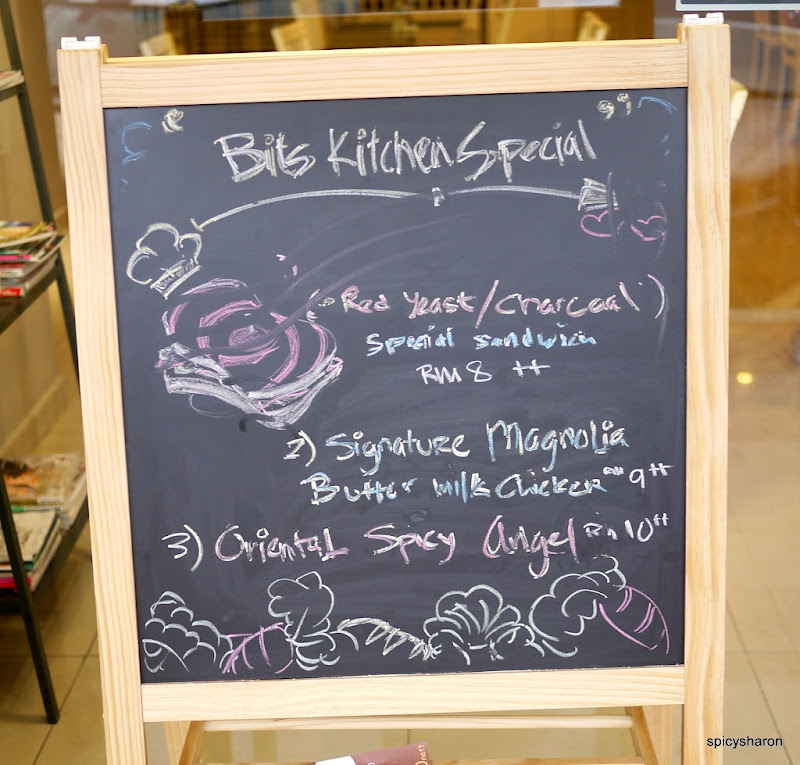 Bits Kitchen Special
Red Yeast/Charcoal
Special Sandwich
RM 8 ++
2) Signature Magnolia
Butter milk Chicken RM 9 ++
3) Oriental Spicy Angel RM 10 ++
spicysharon